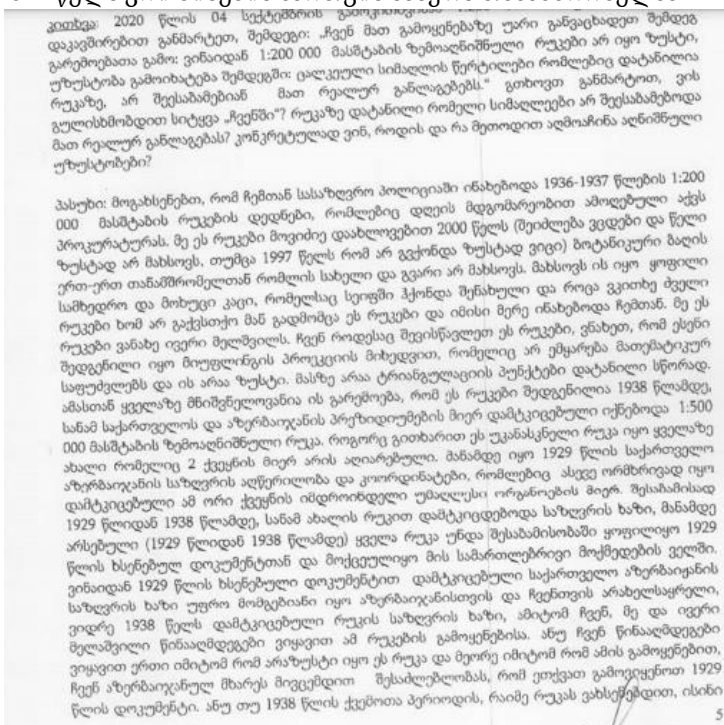 კითხვა: 2020 წლის 04 სექტემბრის
დაკავშირებით განმარტეთ, შემდეგი: „ჩვენ მათ გამოყენებაზე უარი განვაცხადეთ შემდეგ
გარემოებათა გამო: ვინაიდან 1:200 000 მასშტაბის ზემოაღნიშნული რუკები არ იყო ზუსტი,
უზუსტობა გამოიხატება შემდეგში: ცალკეული სიმაღლის წერტილები რომლებიც დატანილია
რუკაზე, არ შეესაბამებიან მათ რეალურ განლაგებებს.“ გთხოვთ განმარტოთ, ვის
გულისხმობდით სიტყვა „ჩვენში“? რუკაზე დატანილი რომელი სიმაღლეები არ შეესაბამებოდა
მათ რეალურ განლაგებას? კონკრეტულად ვინ, როდის და რა მეთოდით აღმოაჩინა აღნიშნული
უზუსტობები?
პასუხი: მოგახსენებთ, რომ ჩემთან სასაზღვრო პოლიციაში ინახებოდა 1936-1937 წლების 1:200
000 მასშტაბის რუკების დედნები, რომლებიც დღეის მდგომარეობით ამოღებული აქვს
პროკურატურას. მე ეს რუკები მოვიძიე დაახლოვებით 2000 წელს (შეიძლება ვცდები და წელი
ზუსტად არ მახსოვს, თუმცა 1997 წელს რომ არ გვქონდა ზუსტად ვიცი) ბოტანიკური ბაღის
ერთ-ერთ თანამშრომელთან რომლის სახელი და გვარი არ მახსოვს. მახსოვს ის იყო ყოფილი
სამხედრო და მოხუცი კაცი, რომელსაც სეიფში ჰქონდა შენახული და როცა ვკითხე ძველი
რუკები ხომ არ გაქვსთქო მან გადმომცა ეს რუკები და იმისი მერე ინახებოდა ჩემთან. მე ეს
რუკები ვანახე ივერი მელაშვილს. ჩვენ როდესაც შევისწავლეთ ეს რუკები, ვნახეთ, რომ ესენი
შედგენილი იყო მიუფლინგის პროეკციის მიხედვით, რომელიც არ ემყარება მათემატიკურ
საფუძვლებს და ის არაა ზუსტი. მასზე არაა ტრიანგულაციის პუნქტები დატანილი სწორად.
ამასთან ყველაზე მნიშვნელოვანია ის გარემოება, რომ ეს რუკები შედგენილია 1938 წლამდე,
სანამ საქართველოს და აზერბაიჯანის პრეზიდიუმების მიერ დამტკიცებული იქნებოდა 1:500
000 მასშტაბის ზემოაღნიშნული რუკა. როგორც გითხარით ეს უკანასკნელი რუკა იყო ყველაზე
ახალი რომელიც 2 ქვეყნის მიერ არის აღიარებული. მანამდე იყო 1929 წლის საქართველო
აზერბაიჯანის საზღვრის აღწერილობა და კოორდინატები, რომლებიც ასევე ორმხრივად იყო
დამტკიცებული ამ ორი ქვეყნის იმდროინდელი უმაღლესი ორგანოების მიერ. შესაბამისად
1929 წლიდან 1938 წლამდე, სანამ ახალის რუკით დამტკიცდებოდა საზღვრის ხაზი, მანამდე
არსებული (1929 წლიდან 1938 წლამდე) ყველა რუკა უნდა შესაბამისობაში ყოფილიყო 1929
წლის ხსენებულ დოკუმენტთან და მოქცეულიყო მის სამართლებრივი მოქმედების ველში.
ვინაიდან 1929 წლის ხსენებული დოკუმენტით დამტკიცებული საქართველო აზერბაიჟანის
საზღვრის ხაზი უფრო მომგებიანი იყო აზერბაიჯანისთვის და ჩვენთვის არახელსაყრელი,
ვიდრე 1938 წელს დამტკიცებული რუკის საზღვრის ხაზი, ამიტომ ჩვენ, მე და ივერი
მელაშვილი წინააღმდეგები ვიყავით ამ რუკების გამოყენებისა. ანუ ჩვენ წინააღმდეგები
ვიყავით ერთი იმიტომ რომ არაზუსტი იყო ეს რუკა და მეორე იმიტომ რომ ამის გამოყენებით,
ჩვენ აზერბაიჯანულ მხარეს მივცემდით შესაძლებლობას, რომ ეთქვათ გამოვიყენოთ 1929
წლის დოკუმენტი. ანუ თუ 1938 წლის ქვემოთა პერიოდის, რაიმე რუკას ვახსენებდით, ისინი
5